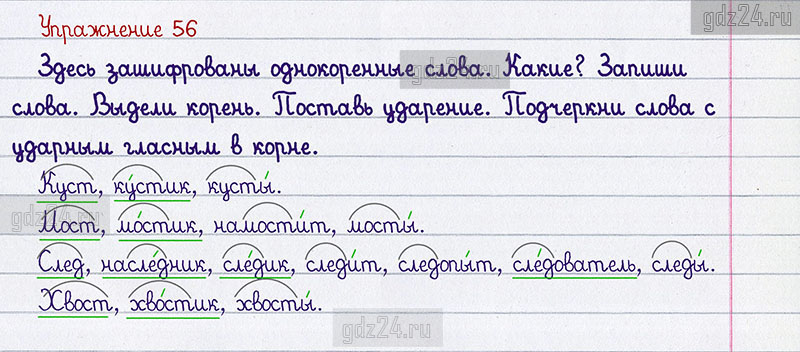 Упражнение 56
gdz24.ru
Здесь зашифрованы однокоренные слова. Какие? Запиши
слова. Выдели корень. Поставь ударение. Подчеркни слова с
ударным гласным в корне.
Куст, ку́стик, кусты́.
Мост, мо́стик, намости́т, мосты́.
След, насле́дник, сле́дик, следи́т, следопы́т, сле́дователь, следы́.
Хвост, хво́стик, хвосты́.
gdz24.ru